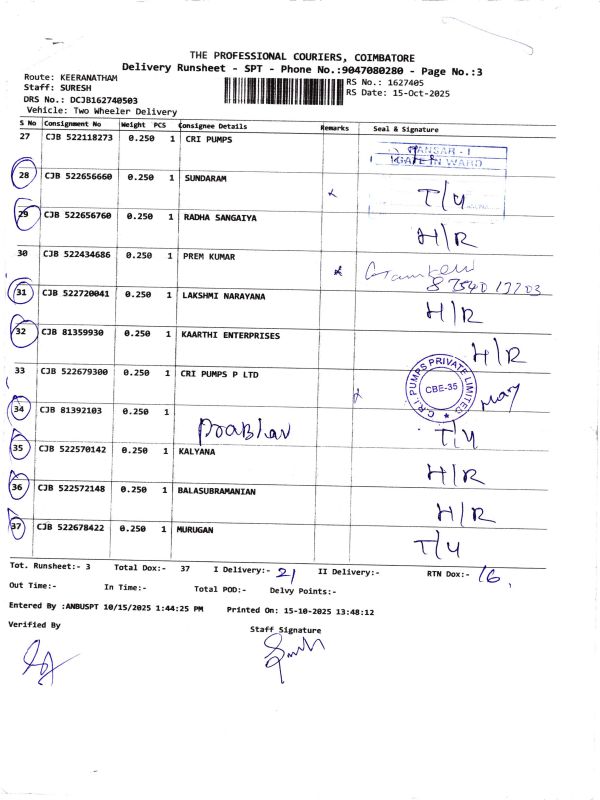 THE PROFESSIONAL COURIERS, COIMBATORE
Delivery Runsheet - SPT - Phone No.:9047080280 - Page No.:3
Route: KEERANATHAM RS No.: 1627405
Staff: SURESH RS Date: 15-Oct-2025
DRS No.: DCJB162740503
Vehicle: Two Wheeler Delivery
S No Consignment No Weight PCS Consignee Details Remarks Seal & Signature
27 CJB 522118273 0.250 1 CRI PUMPS
28 CJB 522656660 0.250 1 SUNDARAM T/4
29 CJB 522656760 0.250 1 RADHA SANGAIYA H/R
30 CJB 522434686 0.250 1 PREM KUMAR
31 CJB 522720041 0.250 1 LAKSHMI NARAYANA H/R
32 CJB 81359930 0.250 1 KAARTHI ENTERPRISES H/R
33 CJB 522679300 0.250 1 CRI PUMPS P LTD C.R.I. PUMPS PRIVATE LIMITED CBE-35
34 CJB 81392103 0.250 1 Prabhav T/4
35 CJB 522570142 0.250 1 KALYANA H/R
36 CJB 522572148 0.250 1 BALASUBRAMANIAN H/R
37 CJB 522678422 0.250 1 MURUGAN T/4
Tot. Runsheet:- 3 Total Dox:- 37 I Delivery:- 21 II Delivery:- RTN Dox:- 16
Out Time:- In Time:- Total POD:- Delvy Points:-
Entered By :ANBUSPT 10/15/2025 1:44:25 PM Printed On: 15-10-2025 13:48:12
Verified By Staff Signature